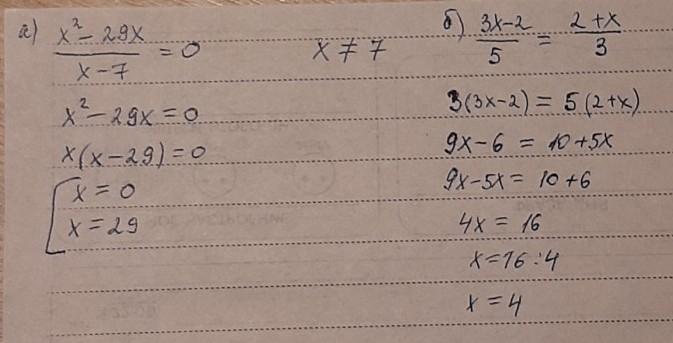 а) (x² − 29x)/(x − 7) = 0    x ≠ 7
x² − 29x = 0
x(x − 29) = 0
x = 0
x = 29
б) (3x − 2)/5 = (2 + x)/3
3(3x − 2) = 5(2 + x)
9x − 6 = 10 + 5x
9x − 5x = 10 + 6
4x = 16
x = 16 : 4
x = 4